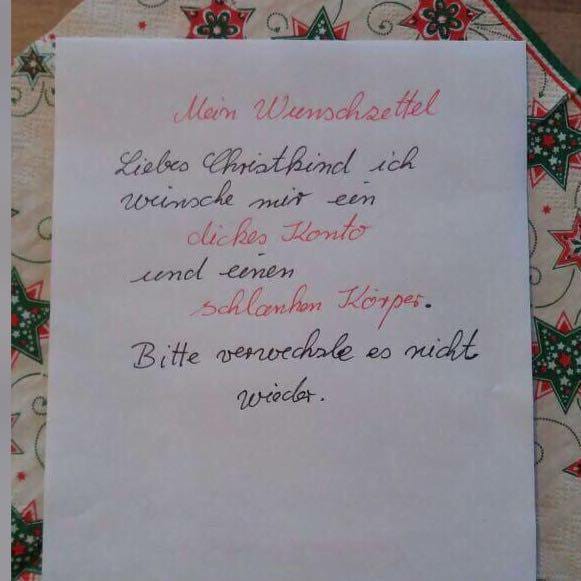 Mein Wunschzettel
Liebes Christkind ich
wünsche mir ein
dickes Konto
und einen
schlanken Körper.
Bitte verwechsle es nicht
wieder.